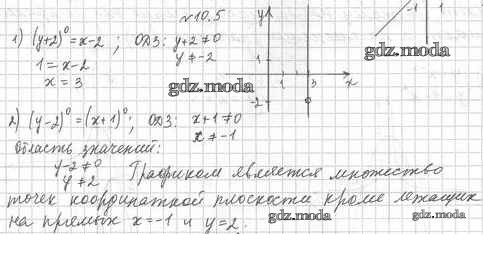 №10.5
1) (y+2)⁰ = x-2 ; ОДЗ: y+2≠0
y≠-2
1 = x-2
x = 3
y
1
1
3
x
-2
-1
1
gdz.moda
gdz.moda
2) (y-2)⁰ = (x+1)⁰; ОДЗ: x+1≠0
x≠-1
Область значений:
y-2≠0
y≠2. Графиком является множество
точек координатной плоскости кроме лежащих
на прямых x=-1 и y=2.
gdz.moda
gdz.moda